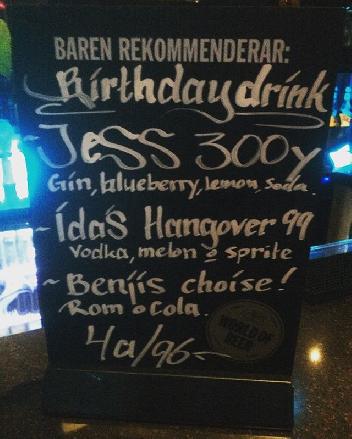 BAREN REKOMMENDERAR:
Birthdaydrink
~Jess 300y
Gin, blueberry, lemon, Soda.
~Idas Hangover 99
Vodka, melon o sprite
~Benjis choise!
Rom o Cola.
4a/96:-
WORLD OF
BEER